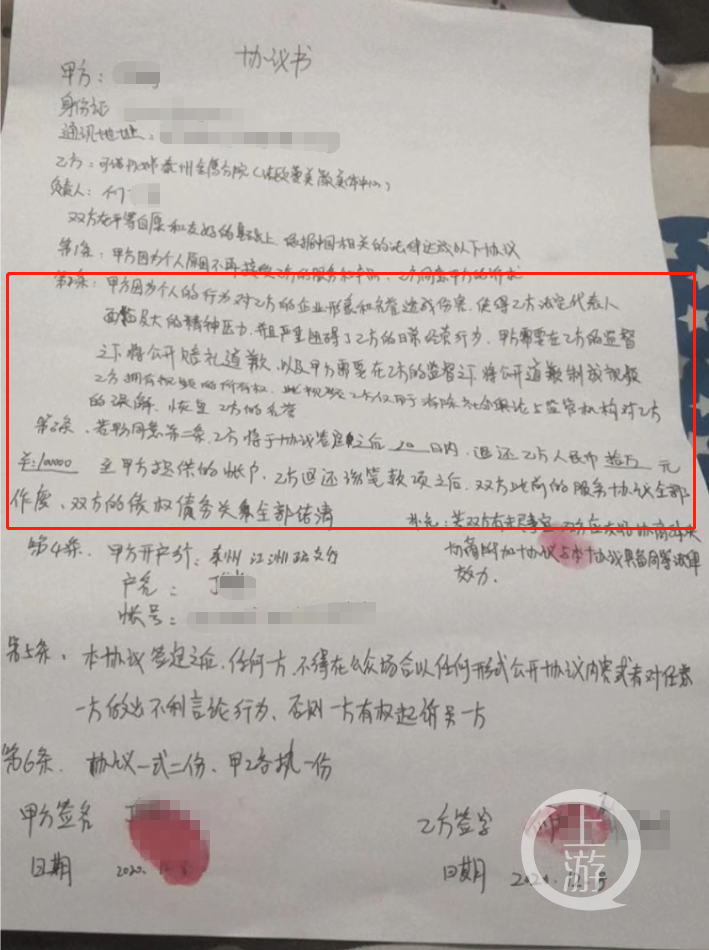 协议书
甲方：
身份证
通讯地址：
乙方：可诺丹婷泰州金鹰分院（法欧蔓美薇美体中心）
负责人：
双方在平等自愿和友好的基础上，根据中国相关的法律达成以下协议
第1条：甲方因为个人原因不再接受乙方的服务和产品，乙方同意甲方的诉求
第2条：甲方因为个人的行为对乙方的企业形象和名誉造成伤害，使得乙方法定代表人
面临及大的精神压力，并且严重阻碍了乙方的日常经营行为，甲方需要在乙方的监督
之下将公开赔礼道歉，以及甲方需要在乙方的监督之下将公开道歉制成视频
乙方拥有视频的所有权，此视频乙方仅用于消除社会舆论与监管机构对乙方
的误解，恢复乙方的名誉
第3条，若甲方同意第二条，乙方将于协议签定之后 20 日内，退还乙方人民币 拾万 元
￥：100000 至甲方提供的帐户，乙方退还该笔款项之后，双方此前的服务协议全部
作废、双方的债权债务关系全部结清
补充：若双方有未尽事宜，双方应友好协商解决
协商附加协议与本协议具备同等法律
效力．
第4条．甲方开户行：泰州 江洲路支行
户名：丁
帐号：
第5条、本协议签定之后，任何一方，不得在公众场合以任何形式公开协议内容或者对任意
一方做出不利言论行为、否则一方有权起诉另一方
第6条．协议一式二份、甲乙各执一份
甲方签名
乙方签字
日期 2020.12.
日期 2020.12.
上游